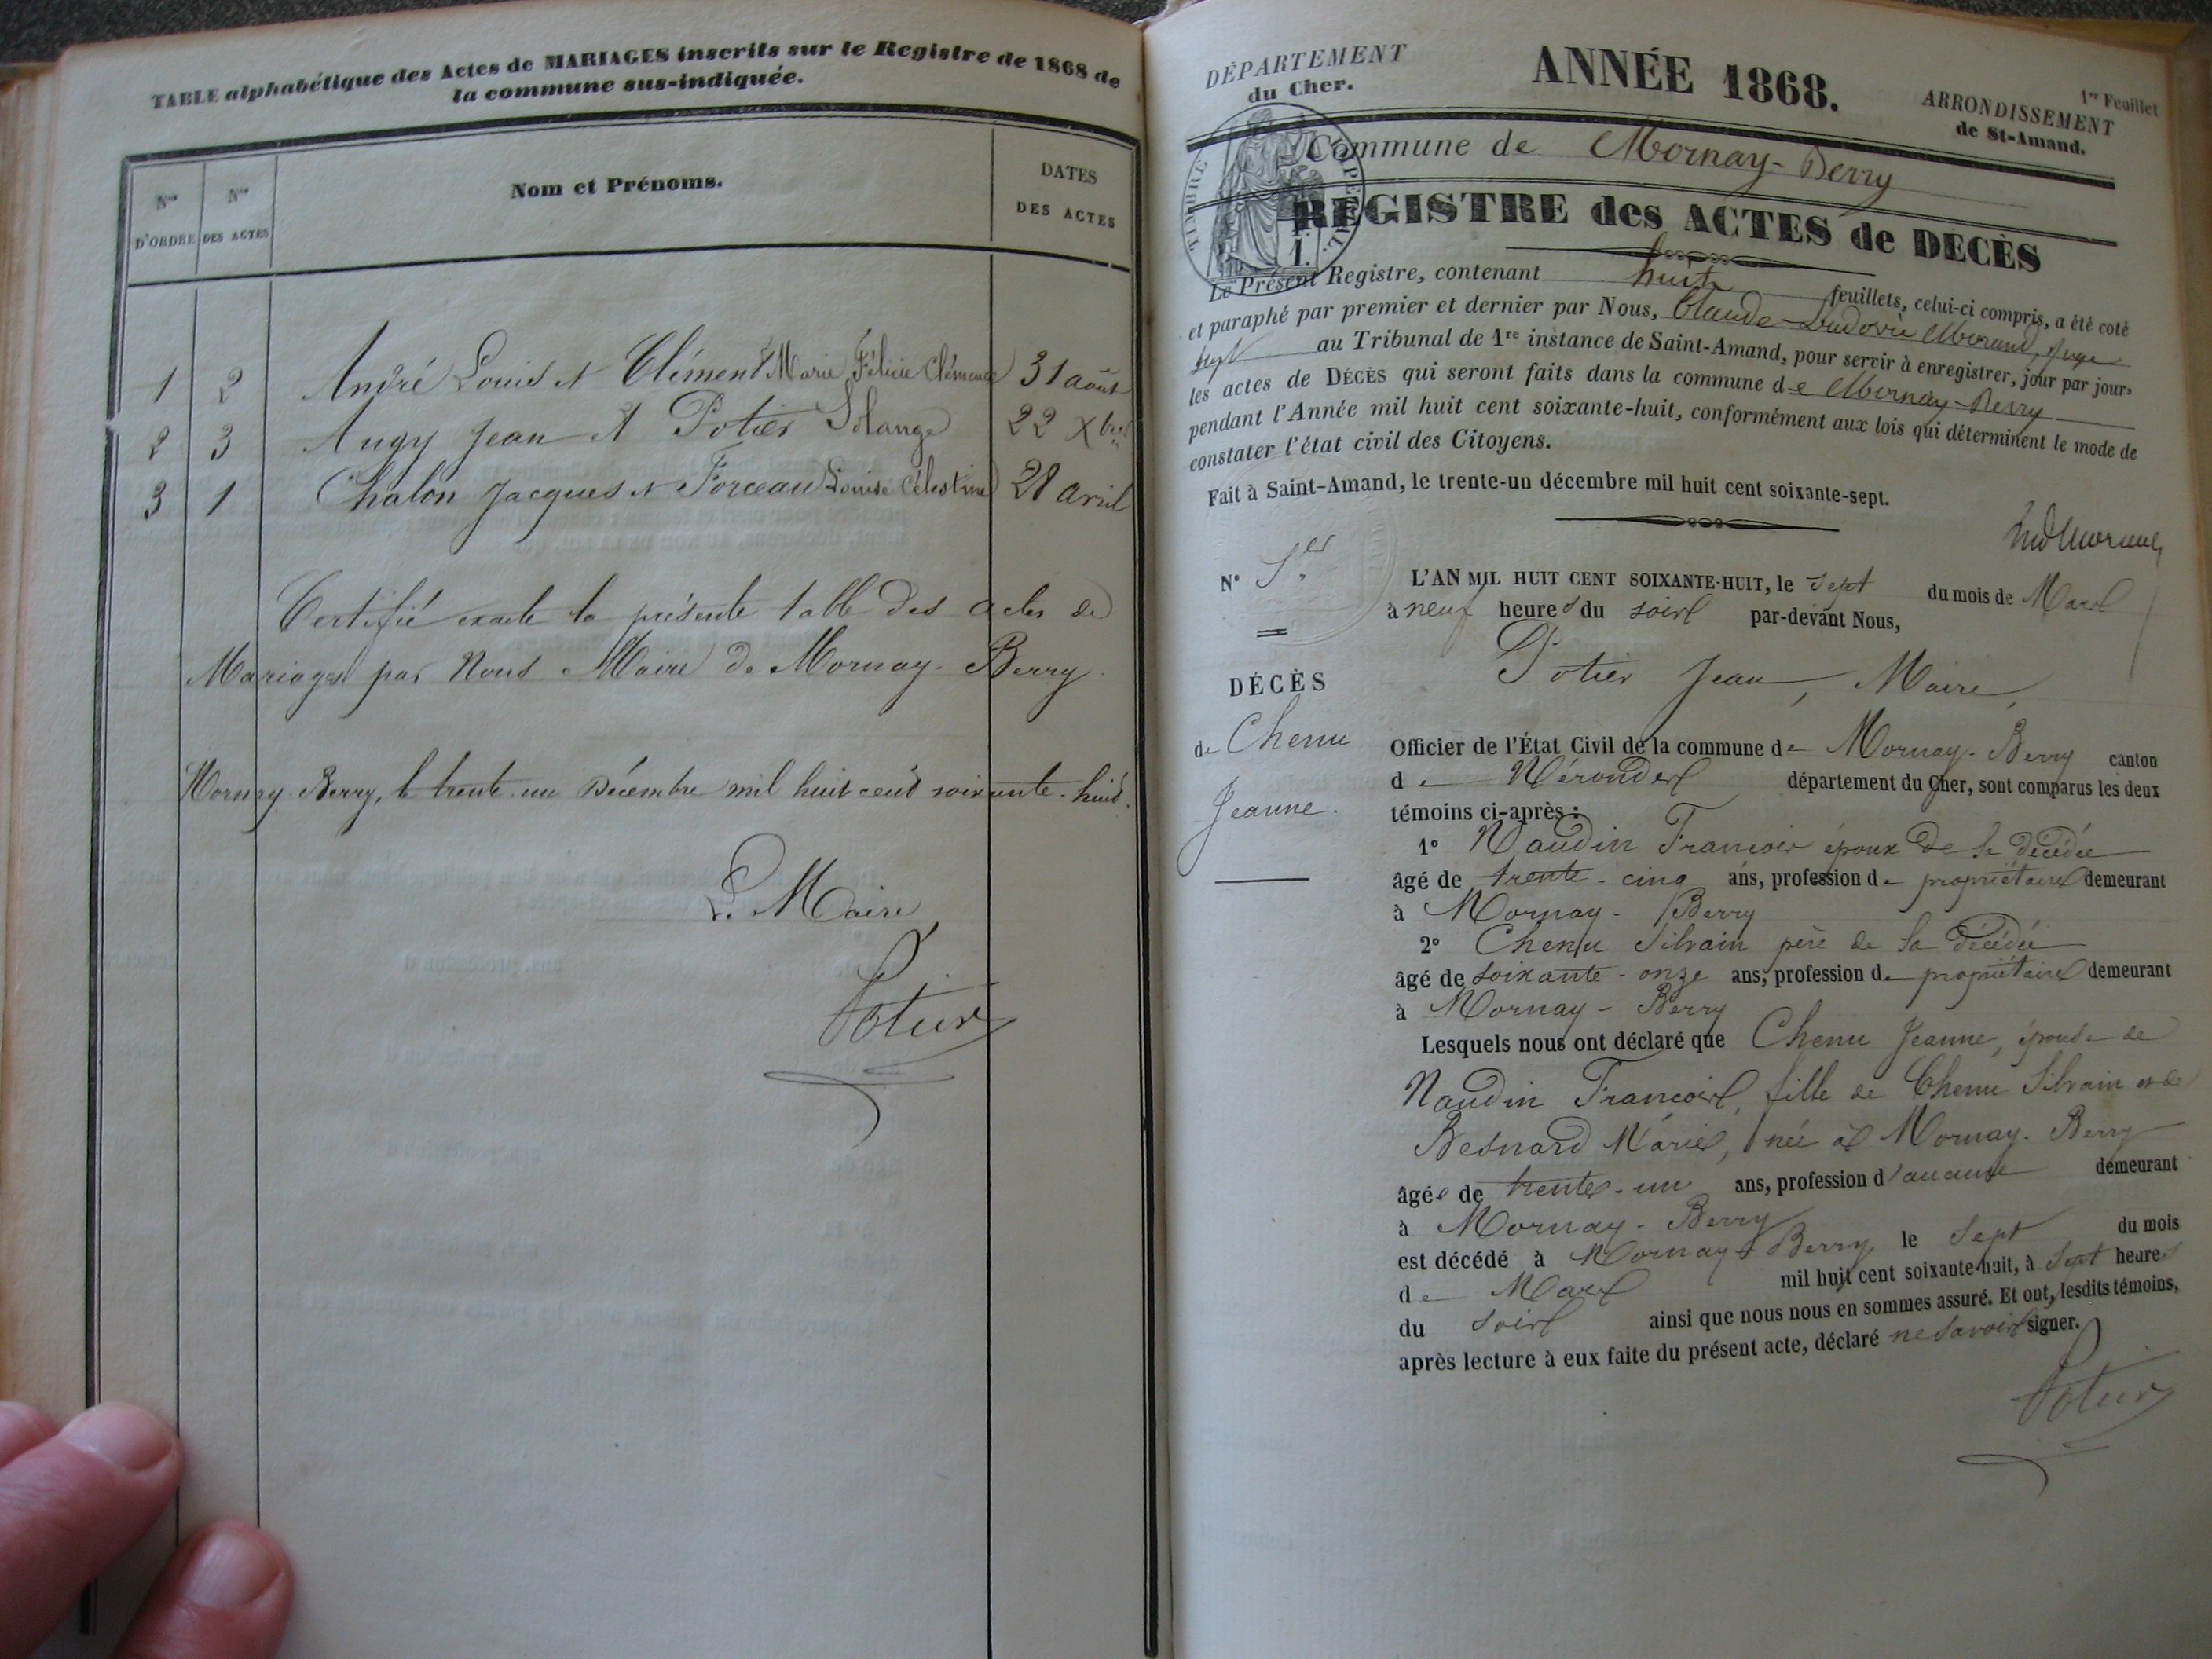 TABLE alphabétique des Actes de MARIAGES inscrits sur le Registre de 1868 de
la commune sus-indiquée.
Nos D'ORDRE
Nos DES ACTES
Nom et Prénoms.
DATES DES ACTES
1 2 André Louis et Clément Marie Félicie Clémence 31 août
2 3 Augy Jean et Potier Solange 22 Xbre
3 1 Chalon Jacques et Forceau Louise Célestine 28 avril
Certifié exacte la présente table des actes de
Mariages par Nous Maire de Mornay-Berry.
Mornay-Berry, le trente-un Décembre mil huit cent soixante-huit.
Le Maire,
Potier
DÉPARTEMENT
du Cher.
ANNÉE 1868.
1er Feuillet
ARRONDISSEMENT
de St-Amand.
TIMBRE IMPÉRIAL
1.
Commune de Mornay-Berry
REGISTRE des ACTES de DÉCÈS
Le Présent Registre, contenant huit feuillets, celui-ci compris, a été coté
et paraphé par premier et dernier par Nous, Claude-Ludovic Morand, Juge
supt au Tribunal de 1re instance de Saint-Amand, pour servir à enregistrer, jour par jour,
les actes de DÉCÈS qui seront faits dans la commune de Mornay-Berry
pendant l'Année mil huit cent soixante-huit, conformément aux lois qui déterminent le mode de
constater l'état civil des Citoyens.
Fait à Saint-Amand, le trente-un décembre mil huit cent soixante-sept.
N° 1er
L'AN MIL HUIT CENT SOIXANTE-HUIT, le sept du mois de Mars
à neuf heures du soir par-devant Nous,
Potier Jean, Maire,
DÉCÈS
de Chenu
Jeanne.
Officier de l'État Civil de la commune de Mornay-Berry canton
de Nérondes département du Cher, sont comparus les deux
témoins ci-après :
1° Naudin François époux de la décédée
âgé de trente-cinq ans, profession de propriétaire demeurant
à Mornay-Berry
2° Chenu Silvain père de la décédée
âgé de soixante-onze ans, profession de propriétaire demeurant
à Mornay-Berry
Lesquels nous ont déclaré que Chenu Jeanne, épouse de
Naudin François, fille de Chenu Silvain et de
Besnard Marie, née à Mornay-Berry
âgée de trente-un ans, profession d'aucune demeurant
à Mornay-Berry
est décédé à Mornay-Berry le sept du mois
de Mars mil huit cent soixante-huit, à sept heures
du soir ainsi que nous nous en sommes assuré. Et ont, lesdits témoins,
après lecture à eux faite du présent acte, déclaré ne savoir signer.
Potier